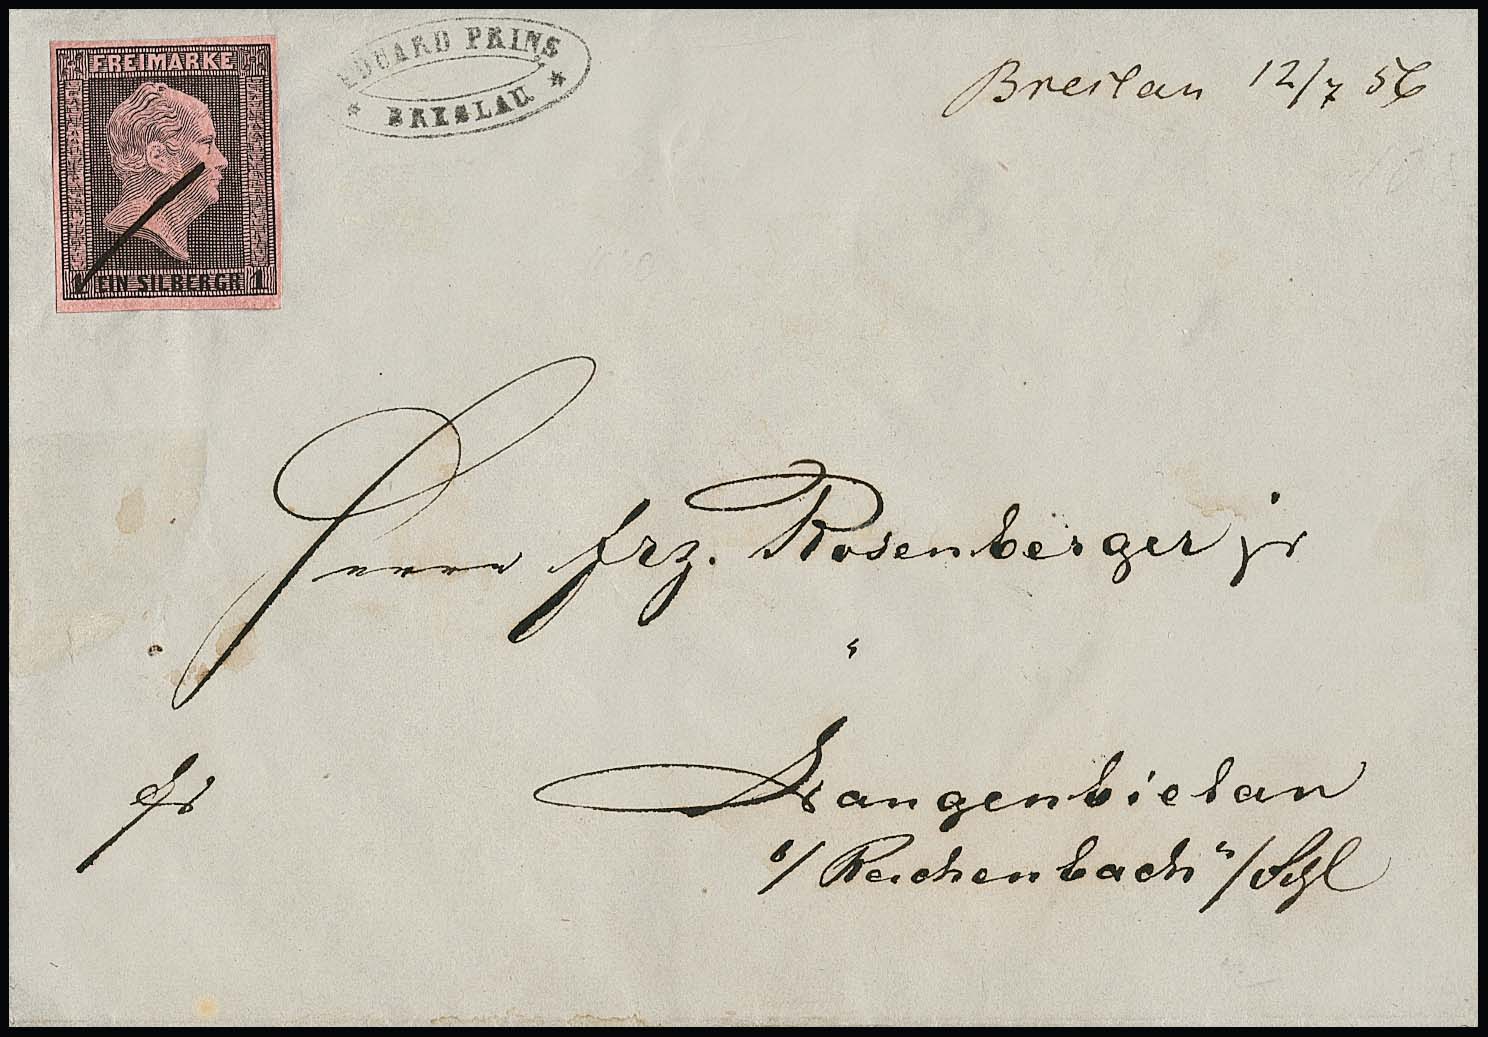 FREIMARKE
1 EIN SILBERGR 1
EDUARD PRINS
* BRESLAU *
Breslau 12/7 56
Herrn frz. Rosenberger jr
Langenbielau
b/ Reichenbach i/Schl